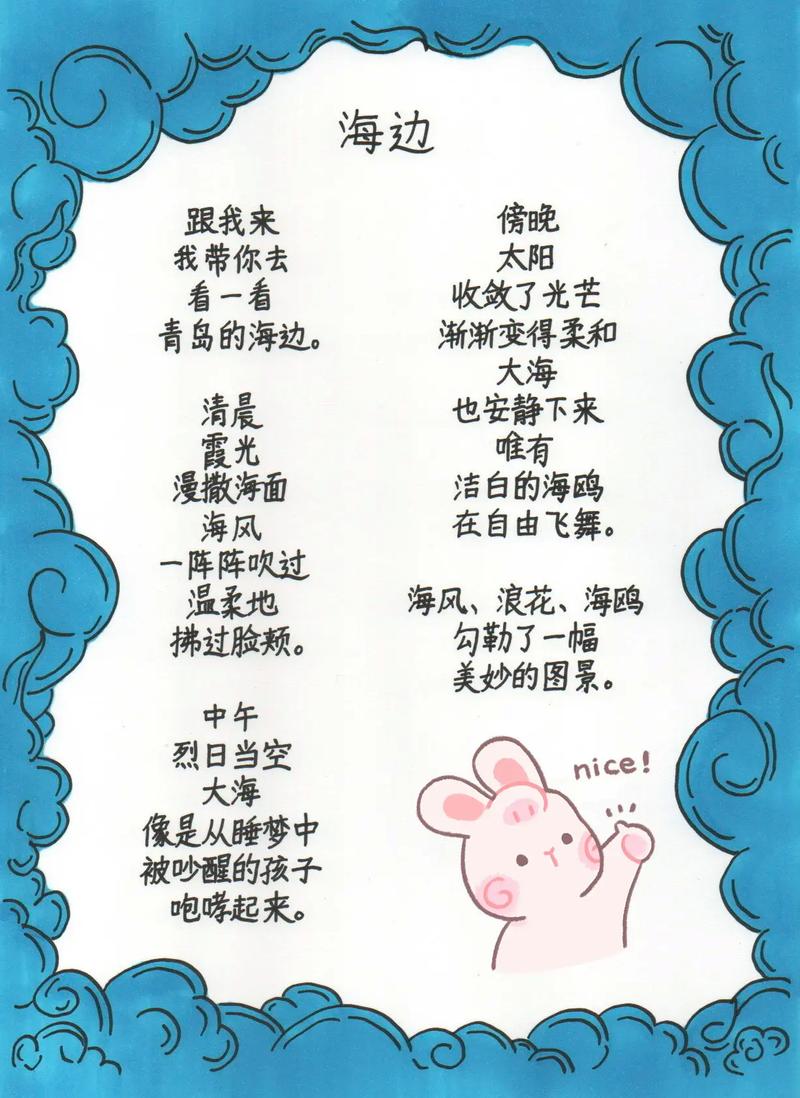 海边
跟我来
我带你去
看一看
青岛的海边。
清晨
霞光
漫撒海面
海风
一阵阵吹过
温柔地
拂过脸颊。
中午
烈日当空
大海
像是从睡梦中
被吵醒的孩子
咆哮起来。
傍晚
太阳
收敛了光芒
渐渐变得柔和
大海
也安静下来
唯有
洁白的海鸥
在自由飞舞。
海风、浪花、海鸥
勾勒了一幅
美妙的图景。
nice!